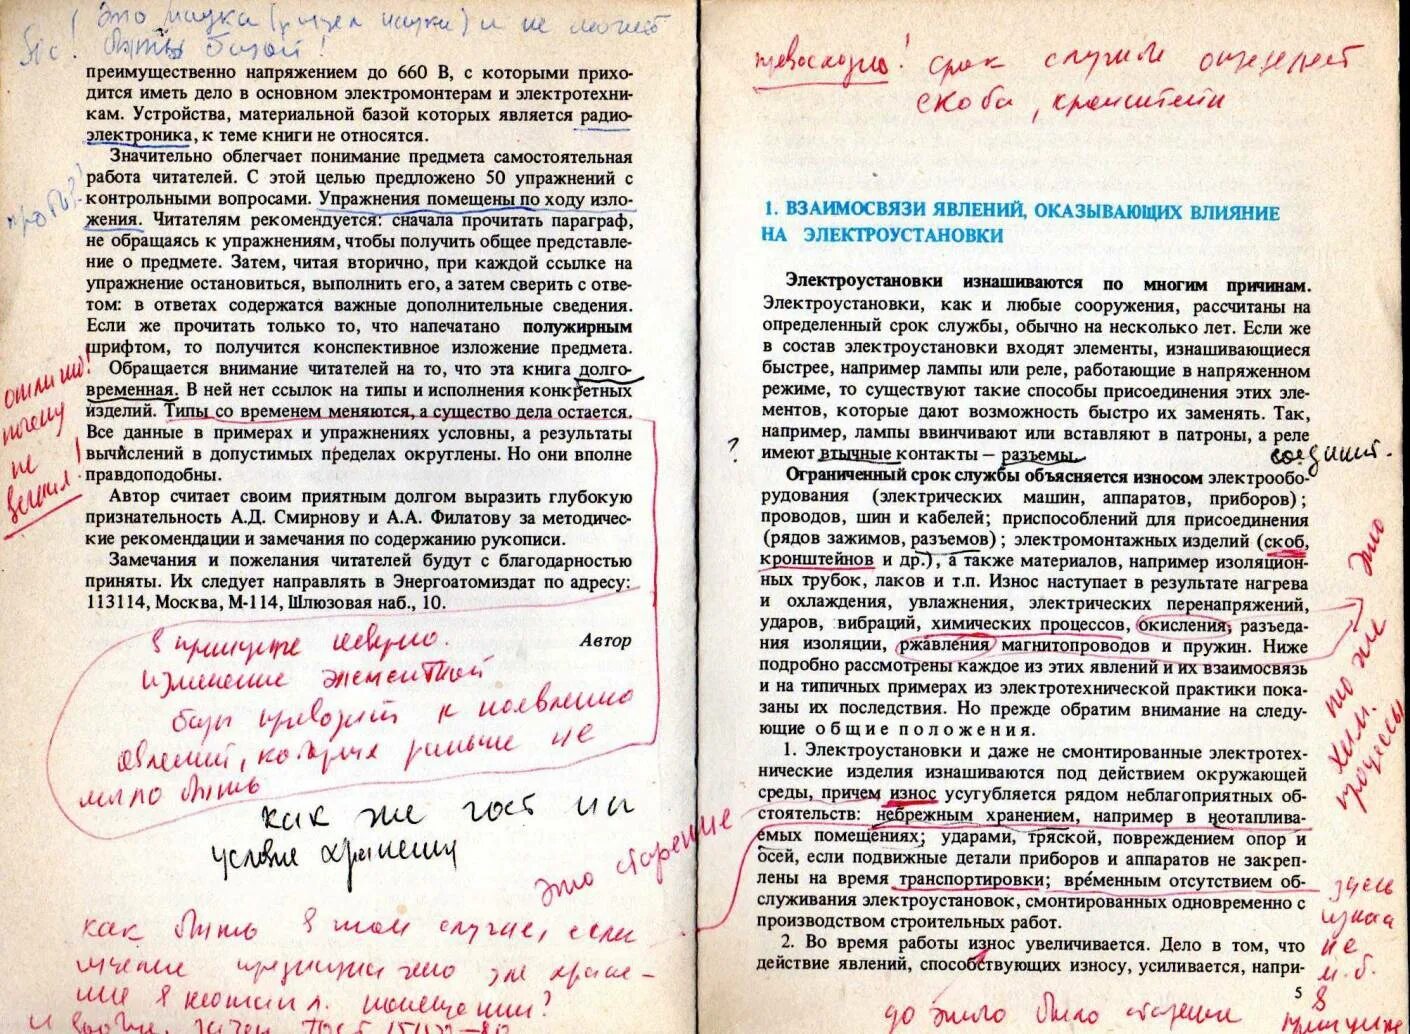 Sic! это наука (раздел науки) и не может
быть базой!
преимущественно напряжением до 660 В, с которыми прихо-
дится иметь дело в основном электромонтерам и электротехни-
кам. Устройства, материальной базой которых является радио-
электроника, к теме книги не относятся.
Значительно облегчает понимание предмета самостоятельная
работа читателей. С этой целью предложено 50 упражнений с
контрольными вопросами. Упражнения помещены по ходу изло-
жения. Читателям рекомендуется: сначала прочитать параграф,
не обращаясь к упражнениям, чтобы получить общее представле-
ние о предмете. Затем, читая вторично, при каждой ссылке на
упражнение остановиться, выполнить его, а затем сверить с отве-
том: в ответах содержатся важные дополнительные сведения.
Если же прочитать только то, что напечатано полужирным
шрифтом, то получится конспективное изложение предмета.
Обращается внимание читателей на то, что эта книга долго-
временная. В ней нет ссылок на типы и исполнения конкретных
изделий. Типы со временем меняются, а существо дела остается.
Все данные в примерах и упражнениях условны, а результаты
вычислений в допустимых пределах округлены. Но они вполне
правдоподобны.
Автор считает своим приятным долгом выразить глубокую
признательность А.Д. Смирнову и А.А. Филатову за методичес-
кие рекомендации и замечания по содержанию рукописи.
Замечания и пожелания читателей будут с благодарностью
приняты. Их следует направлять в Энергоатомиздат по адресу:
113114, Москва, М-114, Шлюзовая наб., 10.
Автор
почему
не
в принципе неверно.
изменение элементной
базы приводит к появлению
явлений, которых раньше не
могло быть
как же гост на
условие хранения
это старение
как быть в том случае, если
хране-
ние в помещении?
превосходно! срок службы определяет
скоба, кронштейн
1. ВЗАИМОСВЯЗИ ЯВЛЕНИЙ, ОКАЗЫВАЮЩИХ ВЛИЯНИЕ
НА ЭЛЕКТРОУСТАНОВКИ
Электроустановки изнашиваются по многим причинам.
Электроустановки, как и любые сооружения, рассчитаны на
определенный срок службы, обычно на несколько лет. Если же
в состав электроустановки входят элементы, изнашивающиеся
быстрее, например лампы или реле, работающие в напряженном
режиме, то существуют такие способы присоединения этих эле-
ментов, которые дают возможность быстро их заменять. Так,
например, лампы ввинчивают или вставляют в патроны, а реле
? имеют втычные контакты — разъемы.
соединит.
Ограниченный срок службы объясняется износом электрообо-
рудования (электрических машин, аппаратов, приборов);
проводов, шин и кабелей; приспособлений для присоединения
(рядов зажимов, разъемов); электромонтажных изделий (скоб,
кронштейнов и др.), а также материалов, например изоляцион-
ных трубок, лаков и т.п. Износ наступает в результате нагрева
и охлаждения, увлажнения, электрических перенапряжений,
ударов, вибраций, химических процессов, окисления, разъеда-
ния изоляции, ржавления магнитопроводов и пружин. Ниже
подробно рассмотрены каждое из этих явлений и их взаимосвязь
и на типичных примерах из электротехнической практики пока-
заны их последствия. Но прежде обратим внимание на следу-
ющие общие положения.
1. Электроустановки и даже не смонтированные электротех-
нические изделия изнашиваются под действием окружающей
среды, причем износ усугубляется рядом неблагоприятных об-
стоятельств: небрежным хранением, например в неотаплива-
емых помещениях; ударами, тряской, повреждением опор и
осей, если подвижные детали приборов и аппаратов не закреп-
лены на время транспортировки; временным отсутствием об-
служивания электроустановок, смонтированных одновременно с
производством строительных работ.
2. Во время работы износ увеличивается. Дело в том, что
действие явлений, способствующих износу, усиливается, напри-
5
это
то же
хим.
процессы
здесь
износа
не
м.б.
в
принципе
до этого было старение